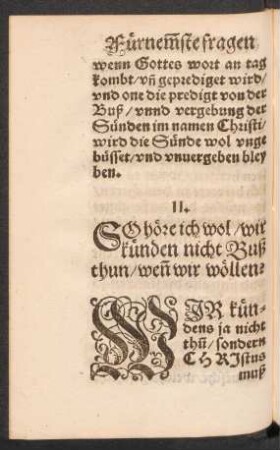 Fürnem̄ste fragen
wenn Gottes wort an tag
kombt/vn̄ geprediget wird/
vnd one die predigt von der
Buß/vnnd vergebung der
Sünden im namen Christi/
wird die Sünde wol vnge
büsset/vnd vnuergeben bley
ben.
II.
SO höre ich wol/wir
künden nicht Buß
thun/wen̄ wir wöllen?
WIR kün-
dens ja nicht
thū/sondern
CHRIstus
muß